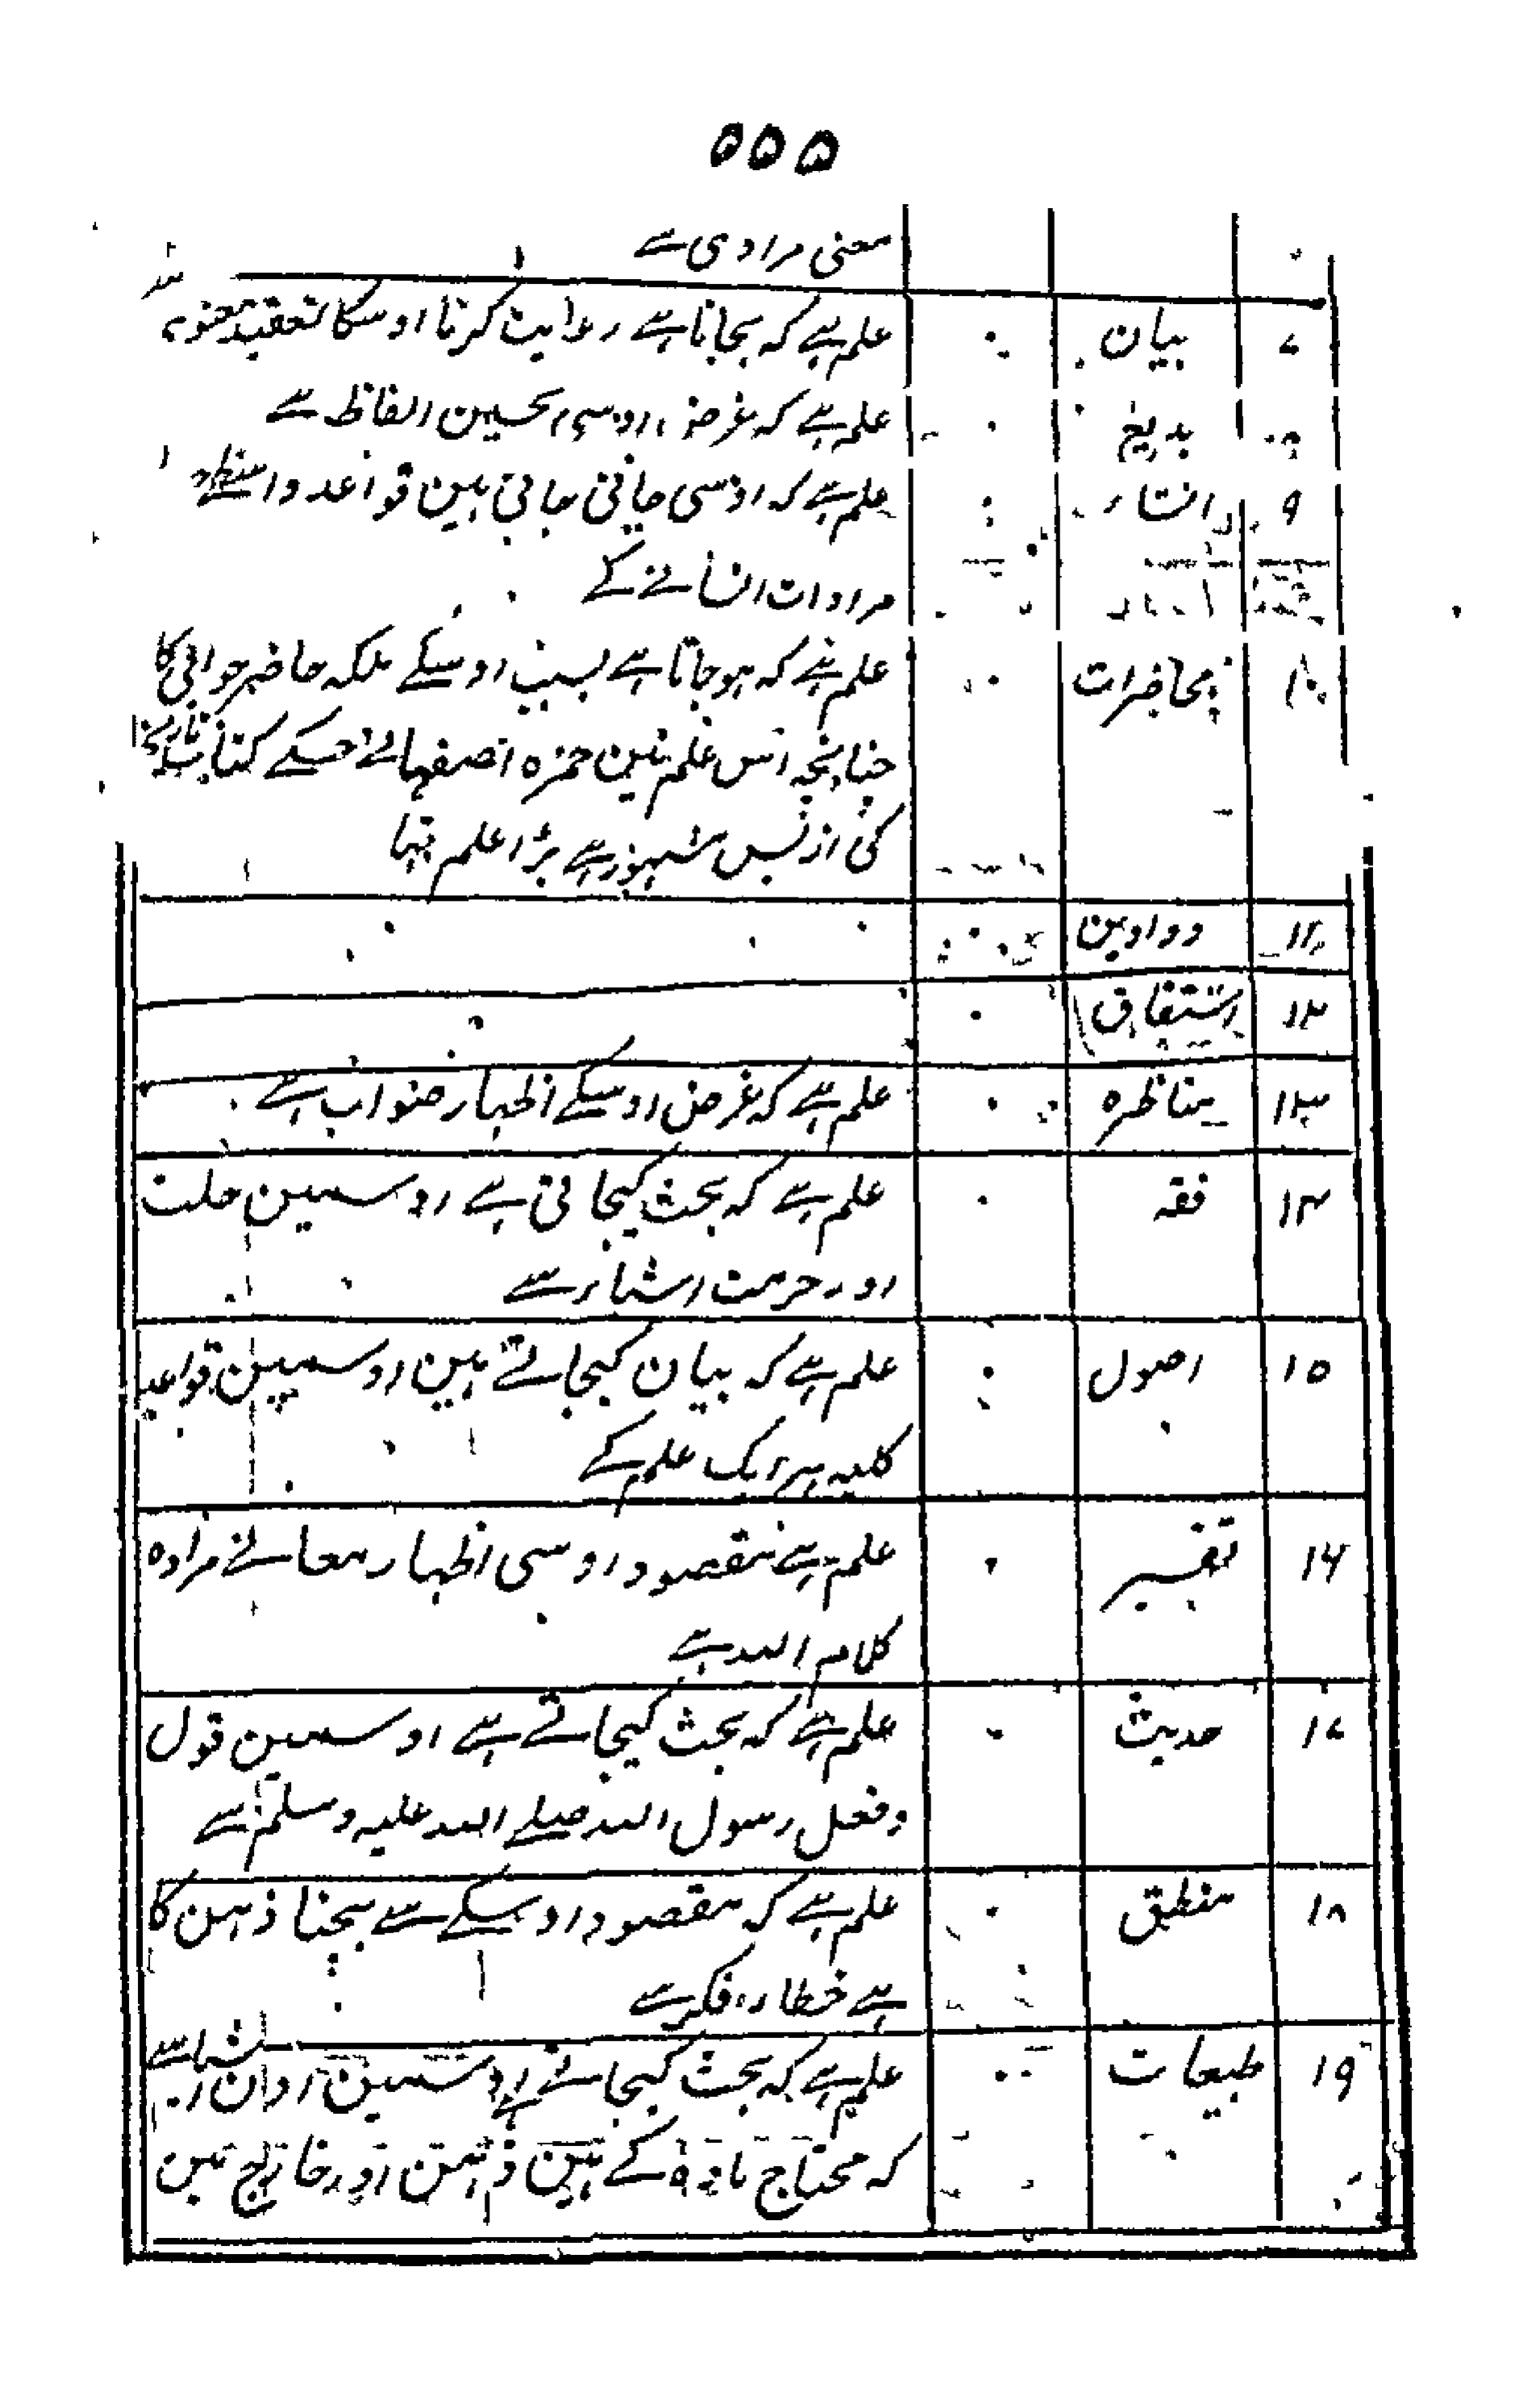 ۵۵۵
معنی مرادی سے
۷ بیان علم ہے کہ بچاتا ہے رعایت کرنا اوسکا تعقید معنوی سے
۸ بدیع علم ہے کہ غرض اوسی تحسین الفاظ ہے
۹ انشاء علم ہے کہ اوسی جانی جاتی ہین قواعد واسطے
مرادات انسانے کے
۱۰ محاضرات علم ہے کہ ہوجاتا ہے بسبب اوسیکے ملکہ حاضر جوابی کا
چنانچہ اس علم مین حمزہ اصفہانے جسکے کتاب تاریخ
کی ازبس مشہور ہے بڑا علم تہا
۱۱ دواوین
۱۲ اشتقاق
۱۳ مناظرہ علم ہے کہ غرض اوسیکے اظہار صواب ہے
۱۴ فقہ علم ہے کہ بحث کیجاتی ہے اوسمین حلت
اور حرمت اشیاء سے
۱۵ اصول علم ہے کہ بیان کیجاتے ہین اوسمین قواعد
کلیہ ہر ایک علم کے
۱۶ تفسیر علم ہے مقصود اوسی اظہار معانے مرادہ
کلام اللہ ہے
۱۷ حدیث علم ہے کہ بحث کیجاتے ہے اوسمین قول
و فعل رسول اللہ صلے اللہ علیہ وسلم سے
۱۸ منطق علم ہے کہ مقصود اوسیکے سے بچنا ذہن کا
ہے خطاء فکر سے
۱۹ طبیعات علم ہے کہ بحث کیجاتے ہے اوسمین اون اشیا سے
کہ محتاج مادہ کے ہین ذہن اور خارج مین